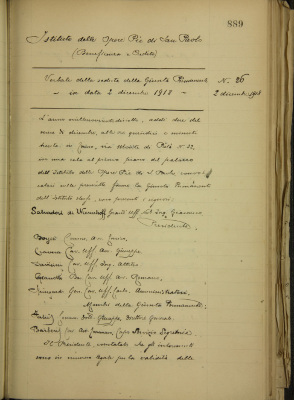 889
Istituto delle Opere Pie di San Paolo
(Beneficenza e Credito)
Verbale della seduta della Giunta Permanente N. 26
in data 2 dicembre 1918 - 2 dicembre 1918
L'anno millenovecentodiciotto, addì due del
mese di dicembre, alle ore quindici e minuti
trenta in Torino, via Monte di Pietà N. 32,
in una sala al primo piano del palazzo
dell'Istituto delle Opere Pie di S. Paolo,
nella presente forma la Giunta Permanente
dell'Istituto stesso, sono presenti i signori:
Salvadori di Wiesenhoff Grand'uff. Ing. Giacomo
Presidente
Comm. Avv.
Cav. Uff. Avv. Giuseppe
Cav. Uff. Ing. Attilio
Cav. Uff. Avv. Romano
Cav. Uff. Carlo, Amministratori,
Membri della Giunta Permanente
Comm. Dott. Giuseppe, Direttore Generale
Cav. Avv. Capo Servizio Segreteria
Il Presidente, constatato che gli intervenuti
sono in numero legale per la validità della